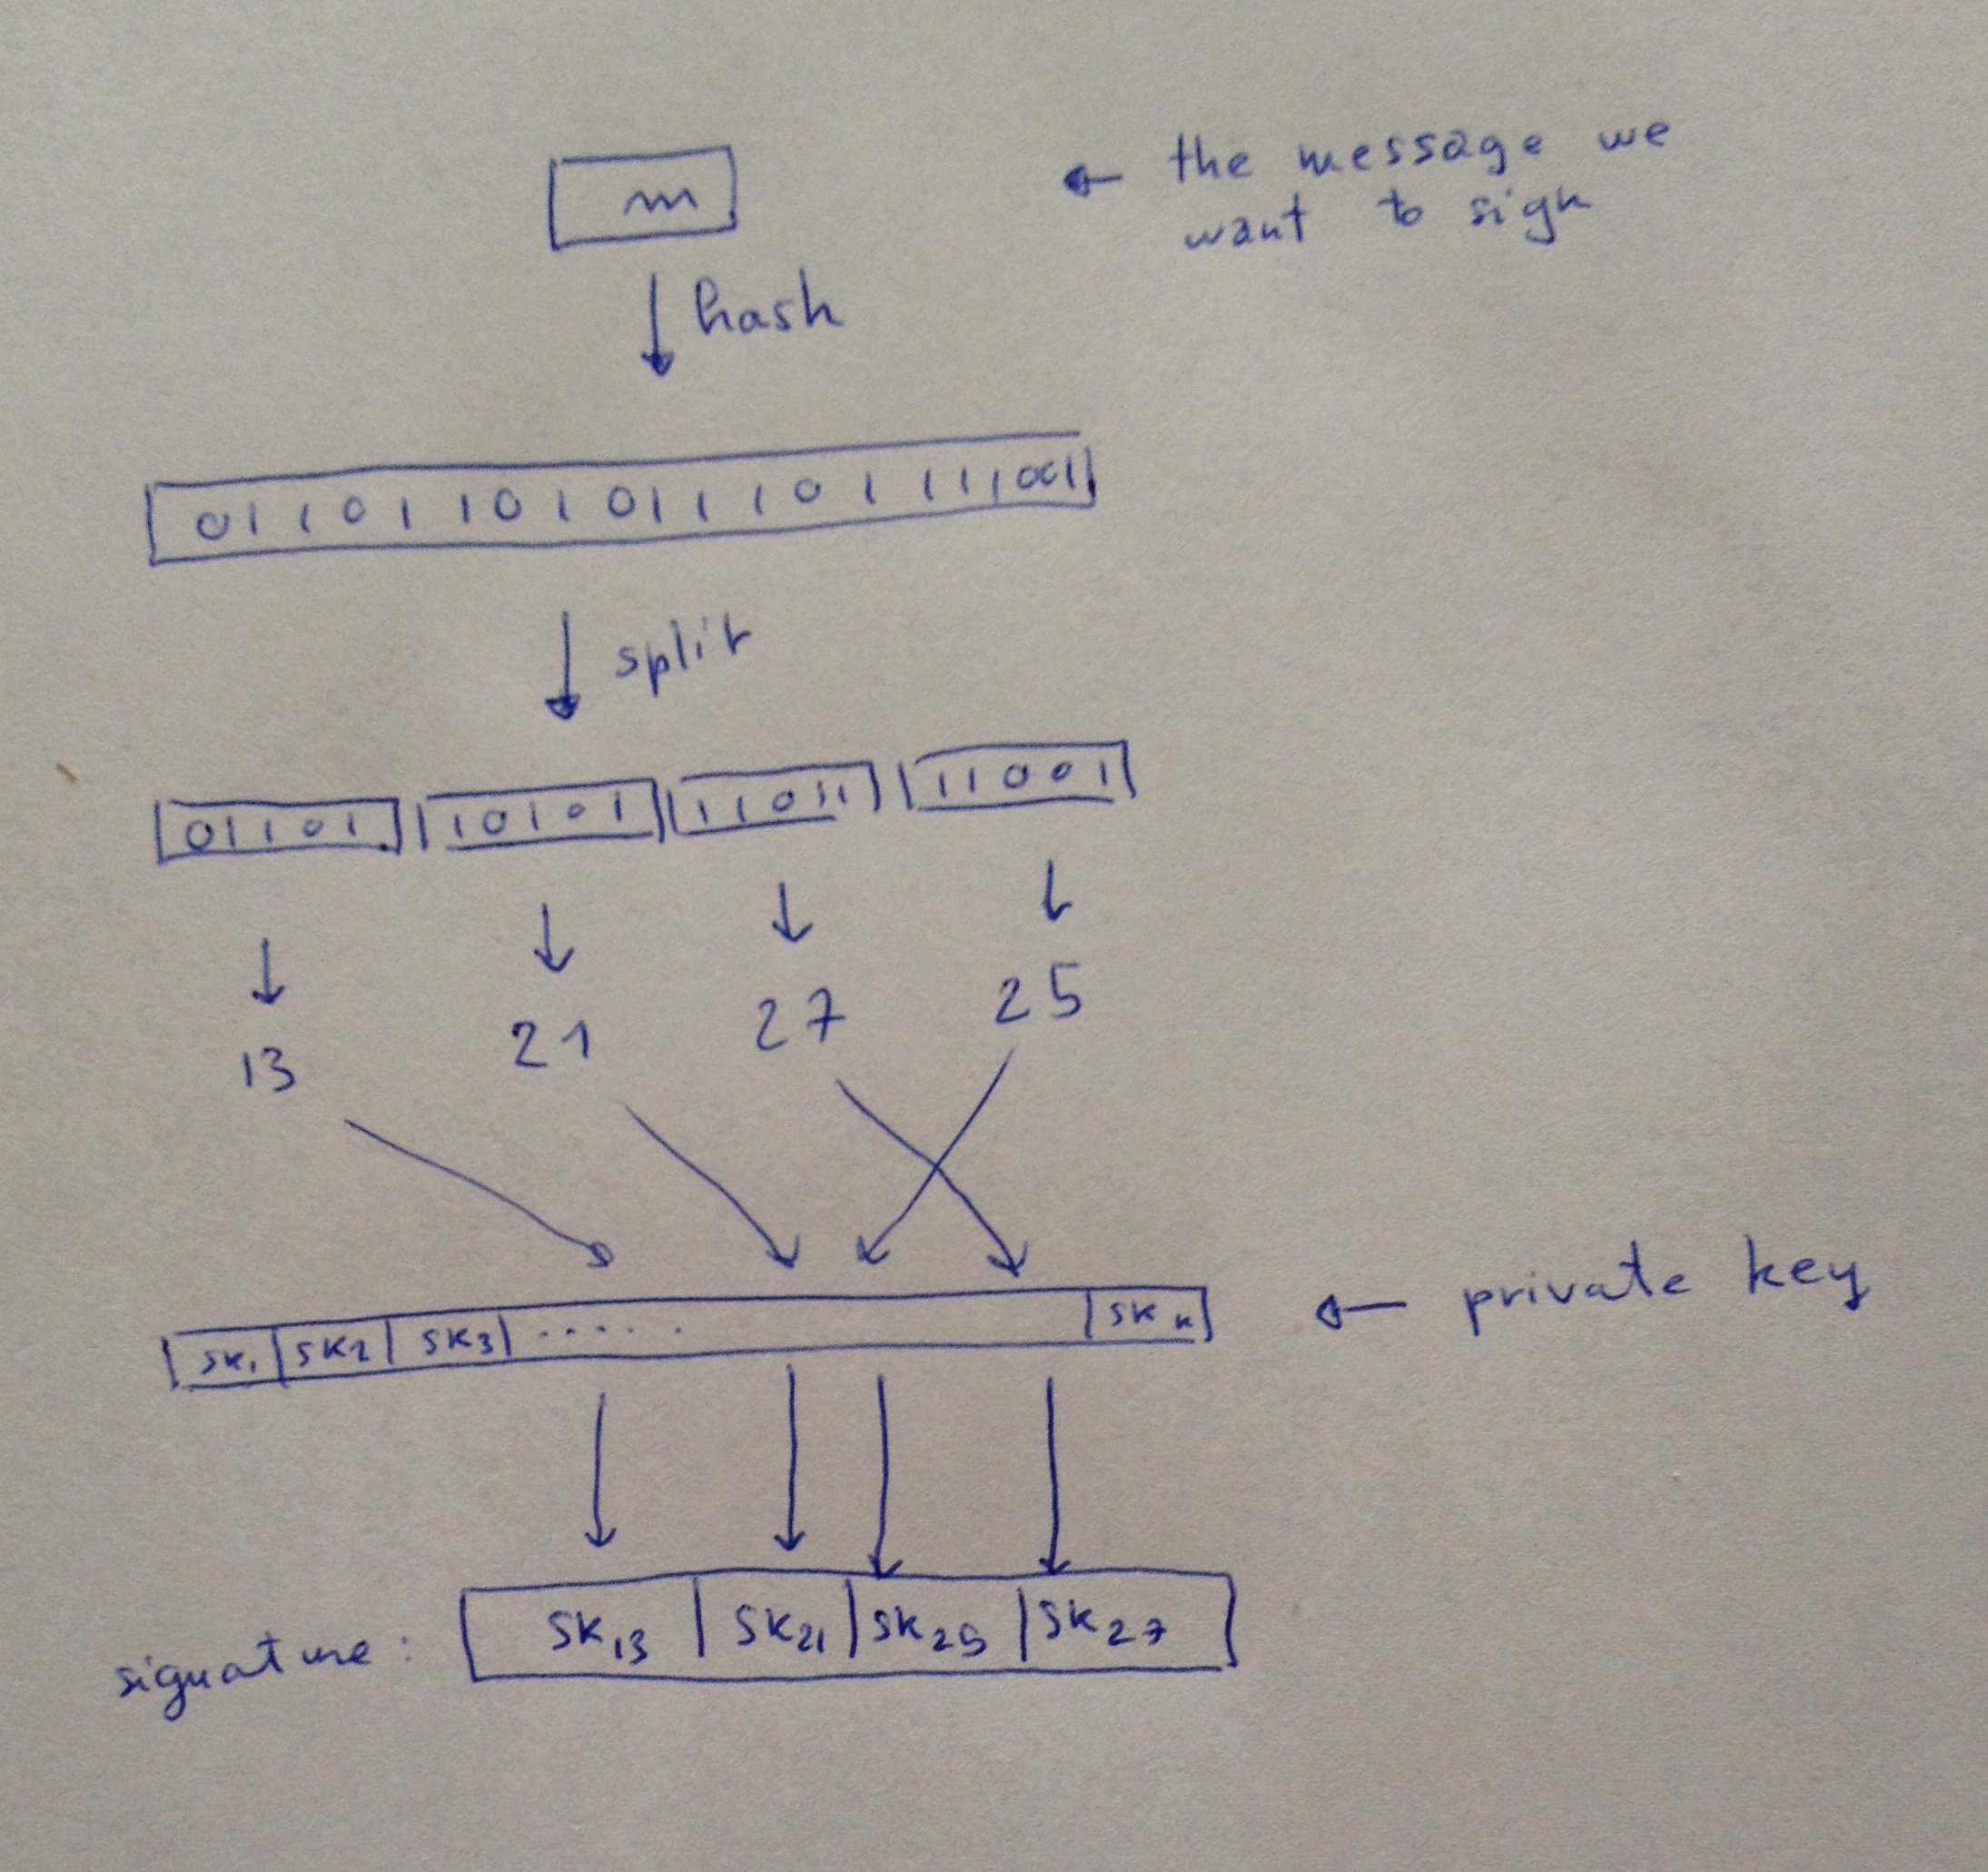 m
← the message we
want to sign
↓ hash
0 1 1 0 1 1 0 1 0 1 1 1 0 1 1 1 1 0 0 1
↓ split
0 1 1 0 1 1 0 1 0 1 1 1 0 1 1 1 1 0 0 1
13 21 27 25
sk1 sk2 sk3 ..... skn ← private key
signature: sk13 sk21 sk25 sk27